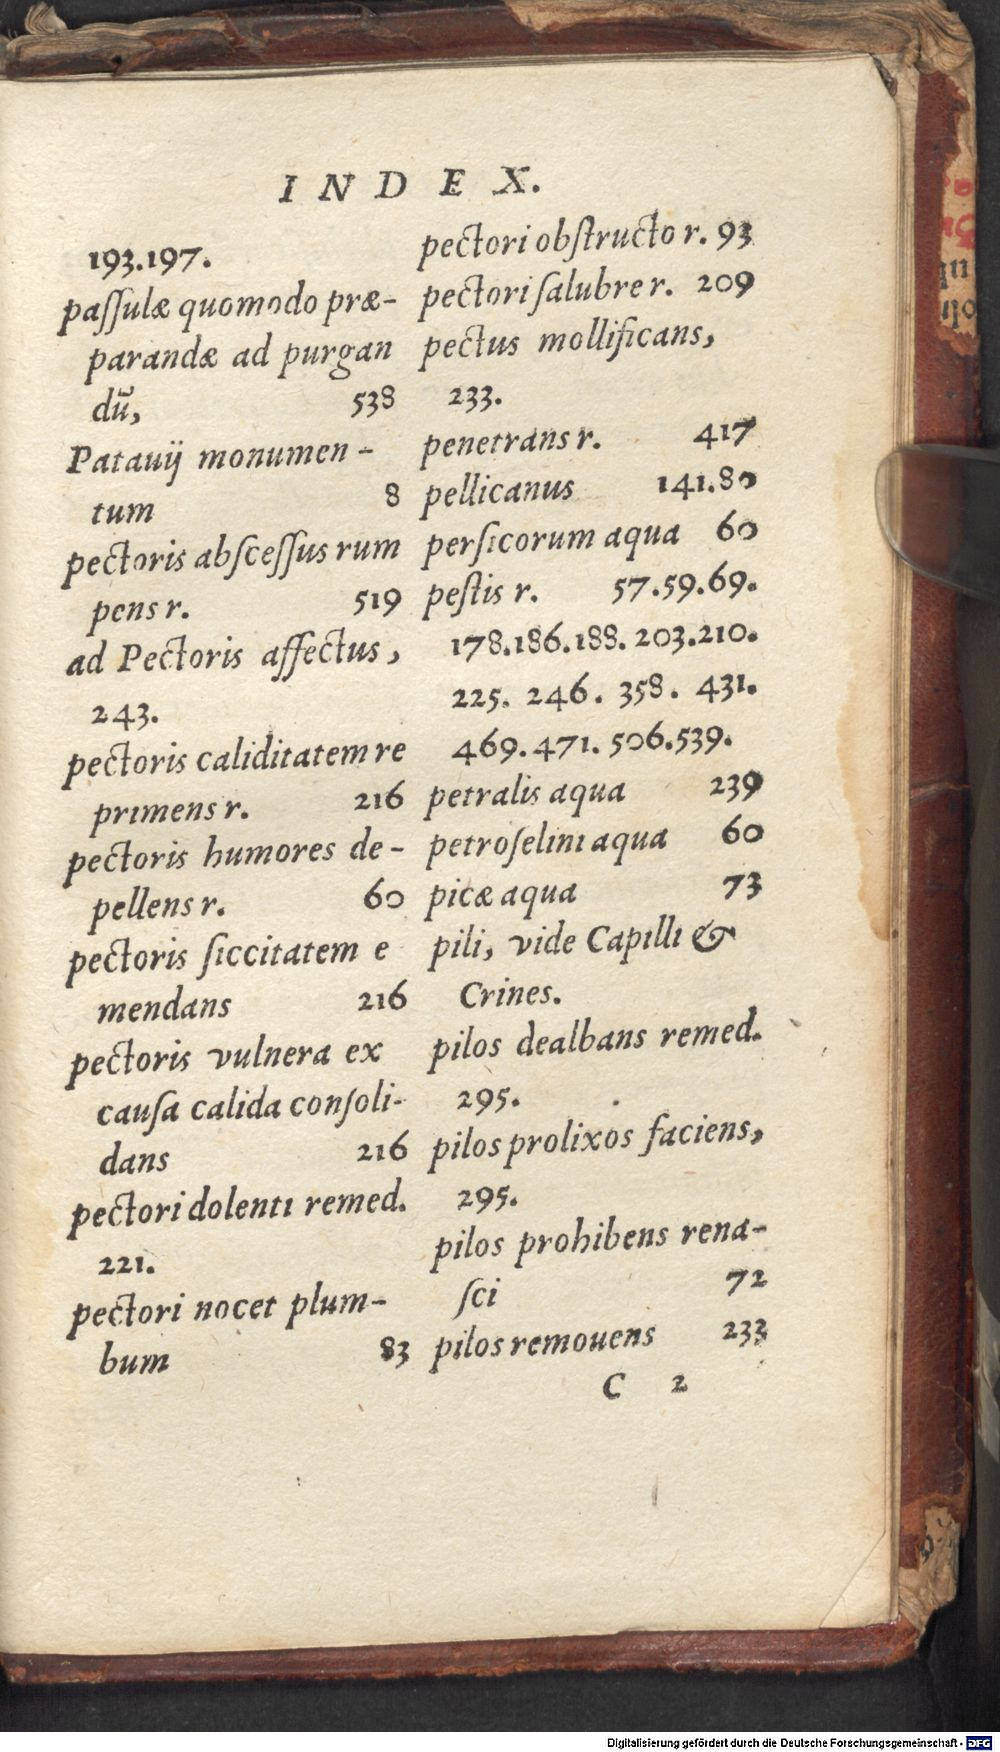 INDEX.
193.197.
paſſulæ quomodo præ-
parandæ ad purgan
dũ, 538
Patauij monumen-
tum 8
pectoris abſceſſus rum
pens r. 519
ad Pectoris affectus,
243.
pectoris caliditatem re
primens r. 216
pectoris humores de-
pellens r. 60
pectoris ſiccitatem e
mendans 216
pectoris vulnera ex
cauſa calida conſoli-
dans 216
pectori dolenti remed.
221.
pectori nocet plum-
bum 83
pectori obſtructo r. 93
pectori ſalubre r. 209
pectus mollificans,
233.
penetrans r. 417
pellicanus 141.80
perſicorum aqua 60
peſtis r. 57.59.69.
178.186.188.203.210.
225. 246. 358. 431.
469.471.506.539.
petralis aqua 239
petroſelini aqua 60
picæ aqua 73
pili, vide Capilli &
Crines.
pilos dealbans remed.
295.
pilos prolixos faciens,
295.
pilos prohibens rena-
ſci 72
pilos remouens 233
C 2
Digitalisierung gefördert durch die Deutsche Forschungsgemeinschaft - DFG